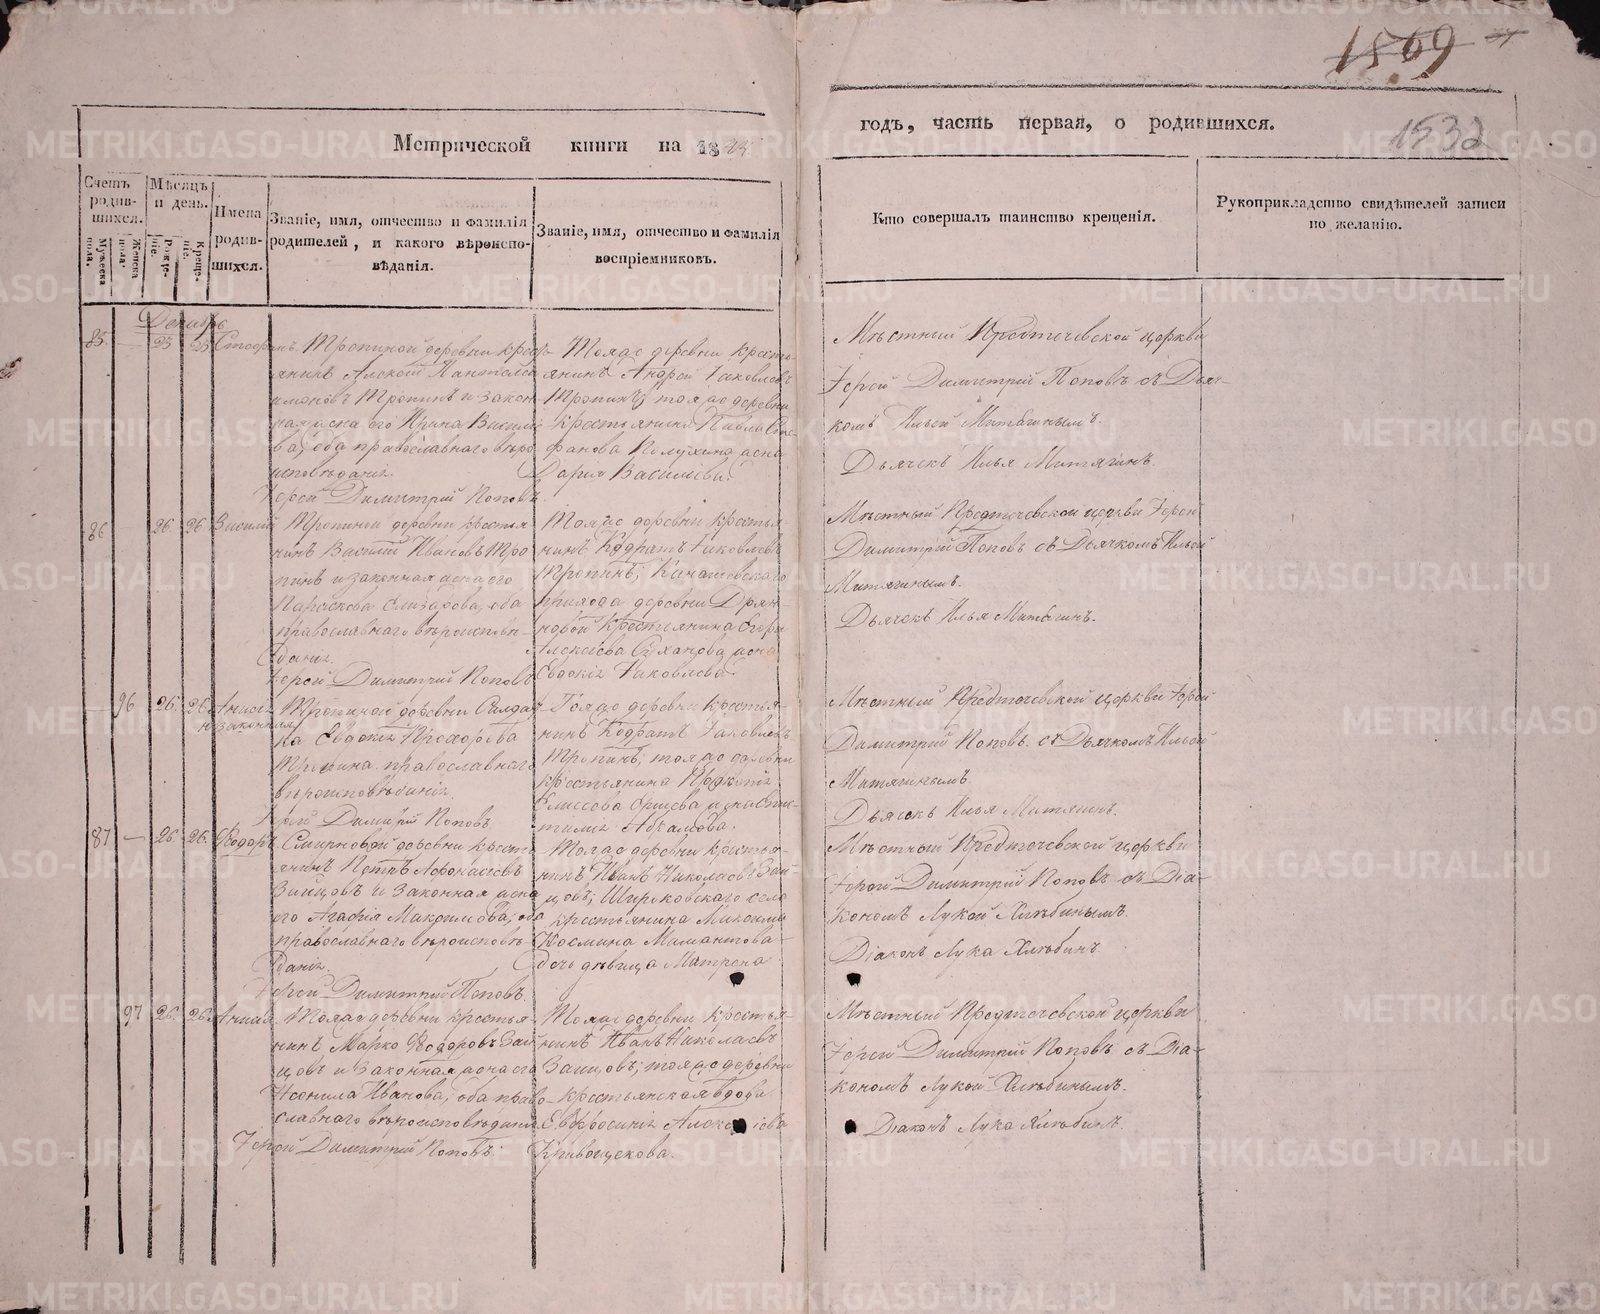 1869
1532
Метрической книги на 18
годъ, часть первая, о родившихся.
Счетъ родившихся.
Мужеска пола.
Женска пола.
Мѣсяцъ и день.
Рожденіе.
Крещеніе.
Имена родившихся.
Званіе, имя, отчество и фамилія родителей, и какого вѣроисповѣданія.
Званіе, имя, отчество и фамилія воспріемниковъ.
Кто совершалъ таинство крещенія.
Рукоприкладство свидѣтелей записи по желанію.
Декабрь
85 — 25 25
Тропиной деревни кресть-
янинъ Алексѣй
Тропинъ и закон-
ная жена его Ирина Василь
ва, оба православнаго вѣро
исповѣданія.
Іерей Димитрій Поповъ
Тояже деревни кресть-
янинъ Андрей Яковлевъ
Тропинъ, тояже деревни
крестьянина Павла Сте-
фанова жена
Дарія Васильева.
Мѣстный Предтечевской церкви
Іерей Димитрій Поповъ съ Дьяч-
комъ Ильей Митягинымъ.
Дьячекъ Илья Митягинъ.
86 — 26 26 Василій
Тропиной деревни крестья
нинъ Василій Ивановъ Тро
пинъ и законная жена его
Параскева Елизарова, оба
православнаго вѣроисповѣ-
данія.
Іерей Димитрій Поповъ
Тояже деревни крестья
нинъ Кодратъ Яковлевъ
Тропинъ,
прихода деревни
крестьянина Егора
Алексѣева жена
Евдокія Яковлева.
Мѣстный Предтечевской церкви Іерей
Димитрій Поповъ съ Дьячкомъ Ильей
Митягинымъ.
Дьячекъ Илья Митягинъ.
— 96 26 26
незаконная
Тропиной деревни Солдат-
ка Евдокія Прохорова
Тропина православнаго
вѣроисповѣданія.
Іерей Димитрій Поповъ
Тояже деревни крестья-
нинъ Кодратъ Яковлевъ
Тропинъ, тояже деревни
крестьянина
Абрамова.
Мѣстный Предтечевской церкви Іерей
Димитрій Поповъ съ Дьячкомъ Ильей
Митягинымъ
Дьячекъ Илья Митягинъ.
87 — 26 26 Ѳеодоръ
Смирновой деревни кресть
янинъ Петръ Афонасьевъ
Зайцовъ и законная жена
его Агафія Максимова, оба
православнаго вѣроисповѣ-
данія.
Іерей Димитрій Поповъ.
Тояже деревни крестья-
нинъ Иванъ Николаевъ Зай
цовъ, Широковскаго села
крестьянина Максима
Космина Мамантова
дочь дѣвица Матрона
Мѣстный Предтечевской церкви
Іерей Димитрій Поповъ съ Діа-
кономъ Лукой Хлѣбинымъ.
Діаконъ Лука Хлѣбинъ
97 26 26
Тояже деревни крестья-
нинъ Марко Ѳеодоровъ Зай
цовъ и законная жена его
Неонила Иванова, оба право-
славнаго вѣроисповѣданія
Іерей Димитрій Поповъ
Тояже деревни крестья-
нинъ Иванъ Николаевъ
Зайцовъ; тояже деревни
крестьянская вдова
Евфросинія Алексѣева
Кривощекова.
Мѣстный Предтечевской церкви
Іерей Димитрій Поповъ съ Діа-
кономъ Лукой Хлѣбинымъ.
Діаконъ Лука Хлѣбинъ.
METRIKI.GASO-URAL.RU